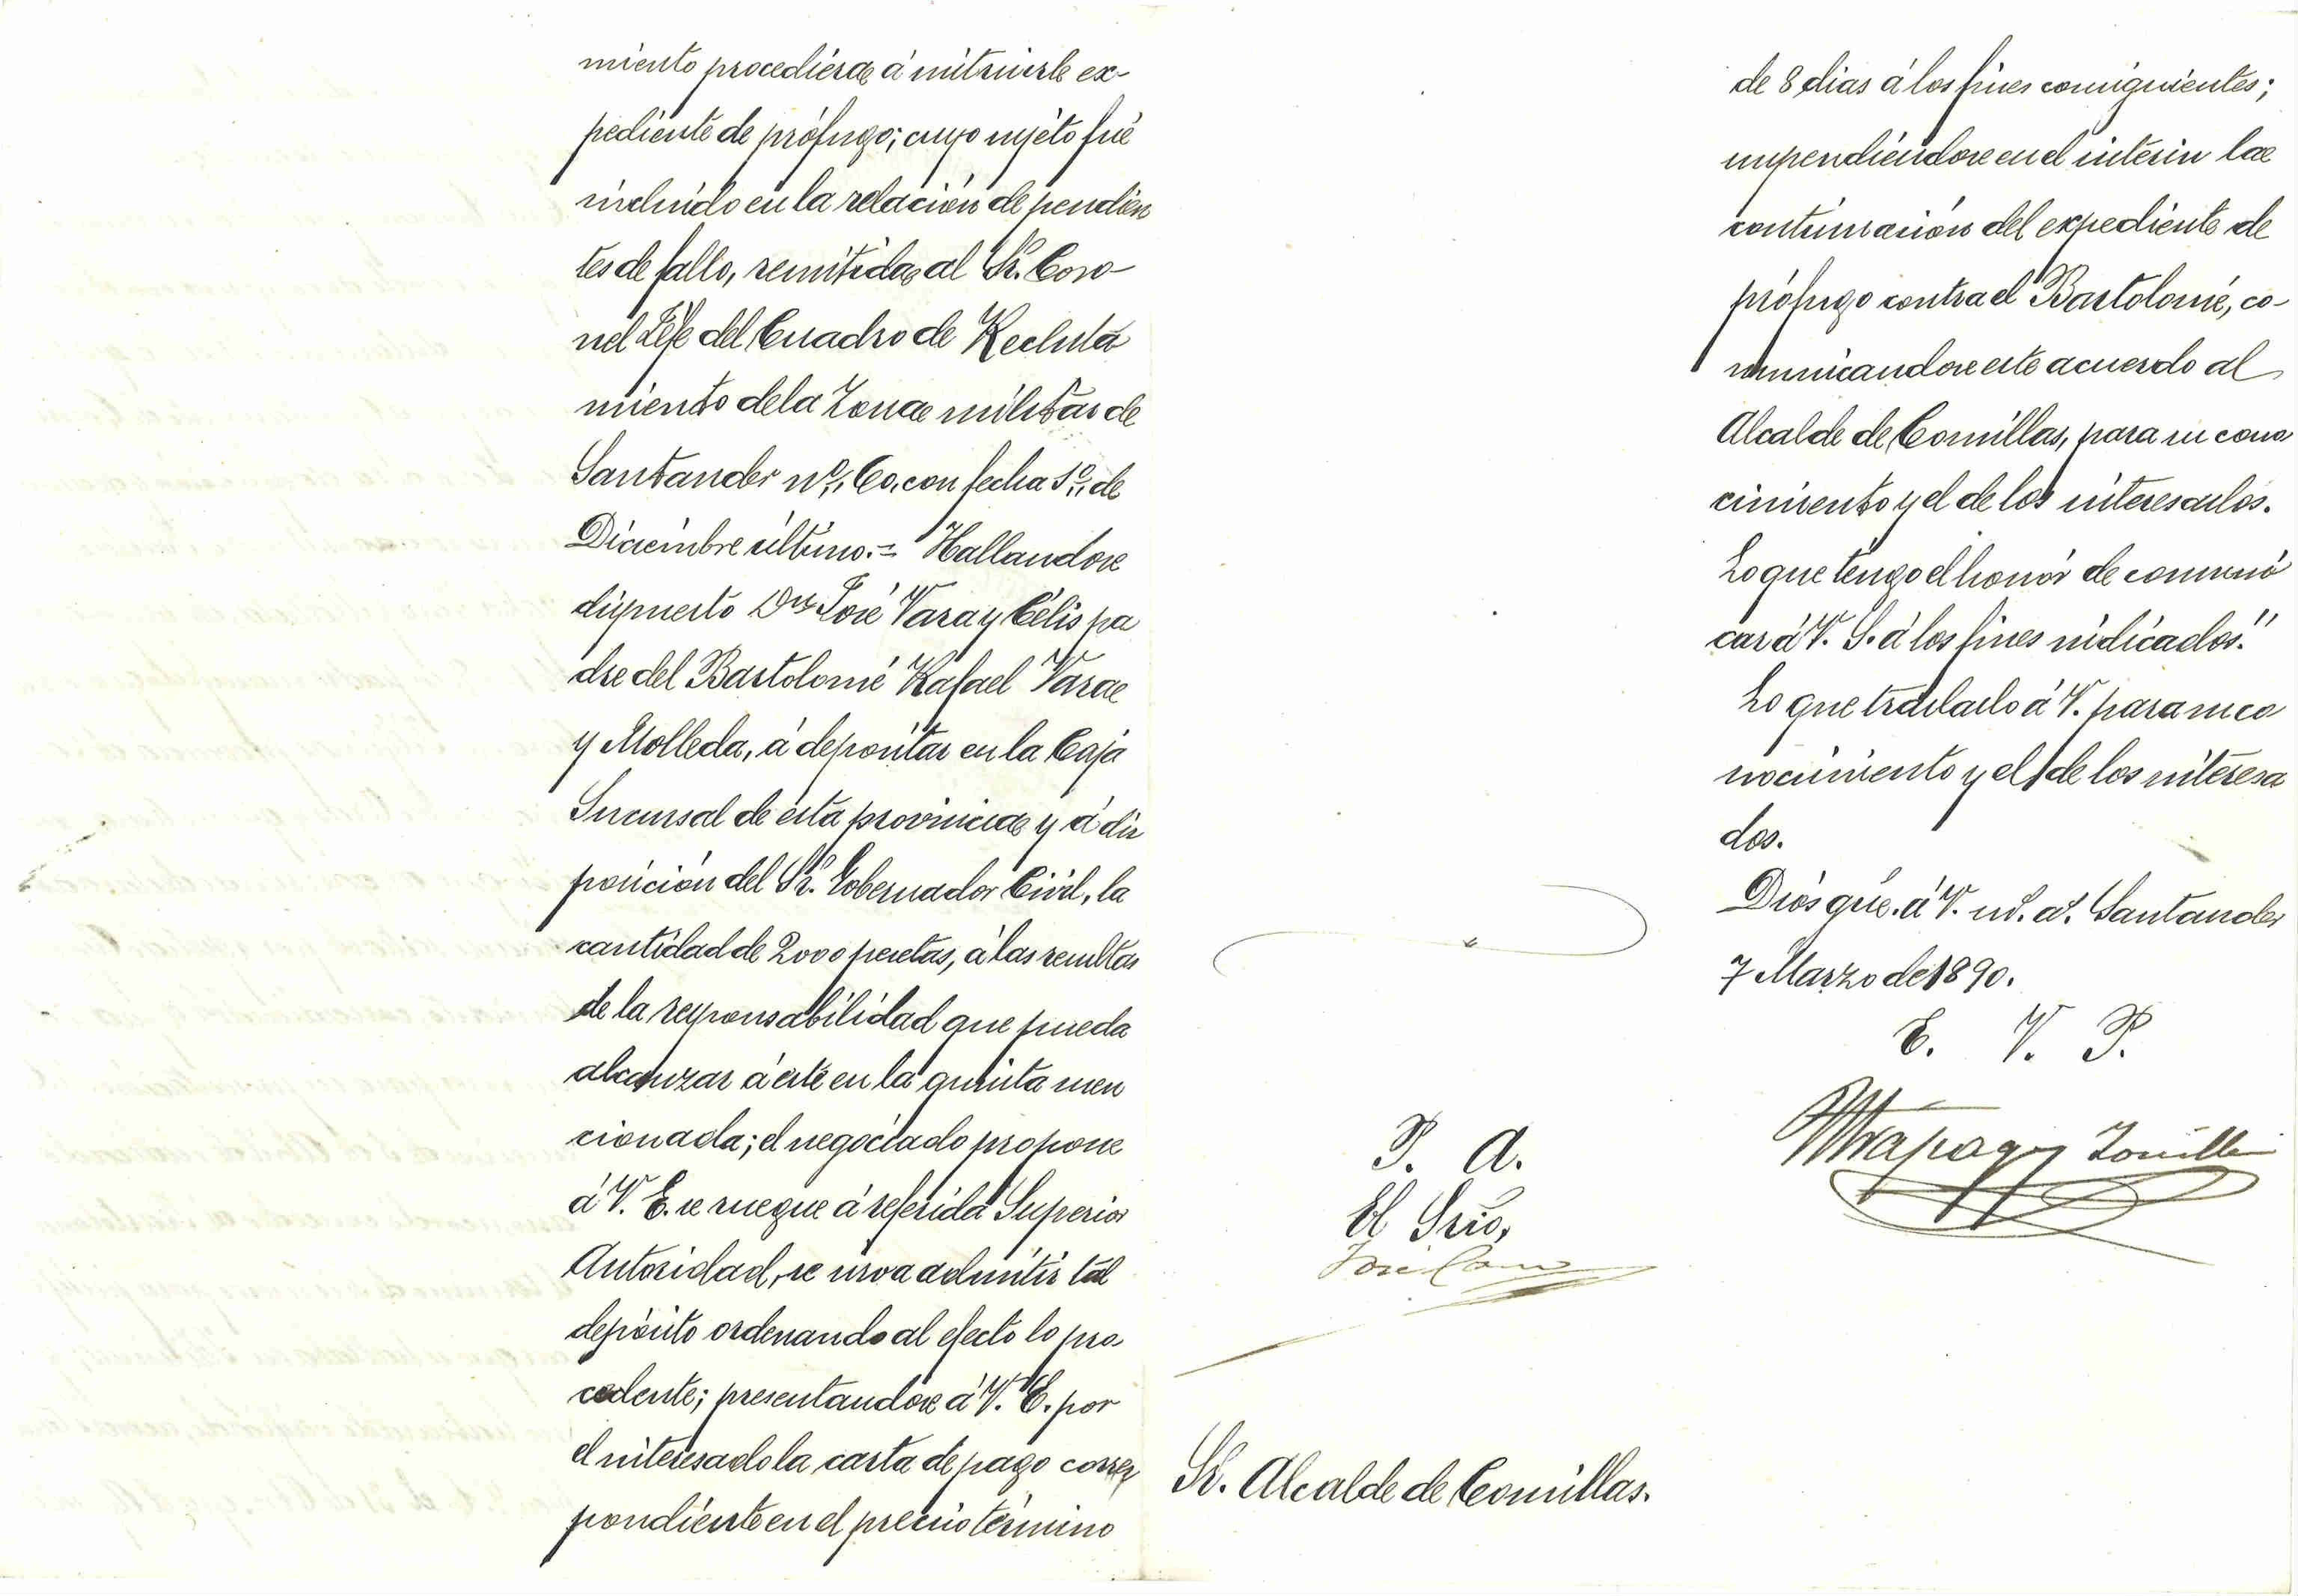 miento procediera á instruirle ex-
pediente de prófugo; cuyo sujeto fué
incluido en la relación de pendien
tes de fallo, remitida al Sr. Coro-
nel Jéfe del Cuadro de Recluta
miento de la Zona militar de
Santander nº 60, con fecha 1º de
Diciembre último. = Hallandose
dispuesto Dn José Vara y Célis pa
dre del Bartolomé Rafael Vara
y Molleda, á depositar en la Caja
Sucursal de esta provincia y á dis
posición del Sr. Gobernador Civil, la
cantidad de 2000 pesetas, á las resultas
de la responsabilidad que pueda
alcanzar á este en la quinta men
cionada; el negociado propone
á V. E. se ruegue á referida Superior
Autoridad, se sirva admitir tal
depósito ordenando al efecto lo pro
cedente; presentandose á V. E. por
el interesado la carta de pago corres
pondiente en el preciso término
de 8 dias á los fines consiguientes;
suspendiéndose en el interin la
continuación del expediente de
prófugo contra el Bartolomé, co-
municandose este acuerdo al
Alcalde de Comillas, para su cono
cimiento y el de los interesados.
Lo que tengo el honor de comuni
car á V. S. á los fines indicados."
Lo que traslado á V. para su co
nocimiento y el de los interesa
dos.
Dios gue. á V. ms. as. Santander
7 Marzo de 1890.
E. V. P.
P. A.
El Srio,
José Cano
Sr. Alcalde de Comillas.